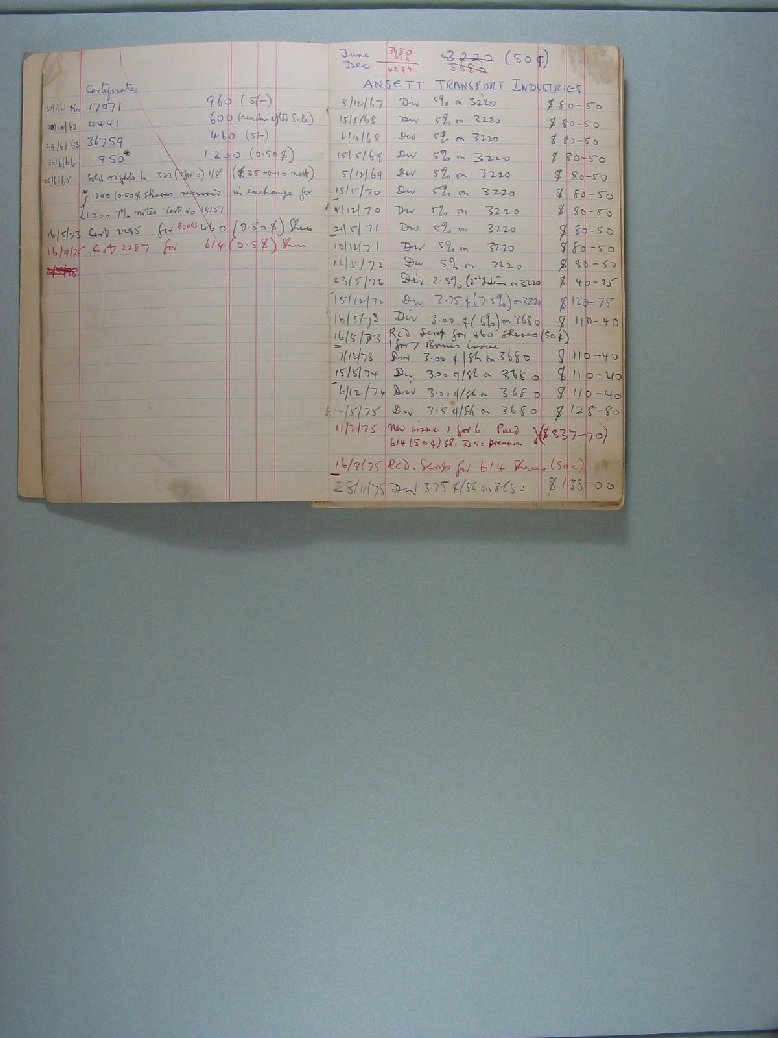 Certificates
No 17071 960 (5/-)
4441 600
28/6/63 36759 460 (5/-)
30/6/66 950* 1200 (0.50$)
Sold rights to 322
* 1200 (0.50$ shares in exchange for
1200 7% notes Cert no
16/5/73 Cert 2285 for BONUS 460 (0.50$) Shares
16/9/75 Cert 2287 for 614 (0.5$) Shares
June 3680
Dec 614
4294
3220 (50¢)
3680
ANSETT TRANSPORT INDUSTRIES
8/12/67 Div 5% on 3220 $80-50
15/5/68 Div 5% on 3220 $80-50
6/12/68 Div 5% on 3220 $80-50
15/5/69 Div 5% on 3220 $80-50
5/12/69 Div 5% on 3220 $80-50
15/5/70 Div 5% on 3220 $80-50
4/12/70 Div 5% on 3220 $80-50
21/5/71 Div 5% on 3220 $80-50
10/12/71 Div 5% on 3220 $80-50
16/5/72 Div 5% on 3220 $80-50
23/5/72 Div 2.5% on 3220 $40-25
15/12/72 Div 3.75¢ (7.5%) on 3220 $120-75
Div 3.00¢ (6%) on 3680 $110-40
16/5/73 Rcd Scrip for 460 Shares (50¢)
1 for 7 Bonus issue
7/12/73 Div 3.00¢/Sh on 3680 $110-40
15/5/74 Div 3.00¢/Sh on 3680 $110-40
6/12/74 Div 3.00¢/Sh on 3680 $110-40
14/5/75 Div 3.5¢/Sh on 3680 $128-80
11/7/75 New issue 1 for 6 Paid
614 (50¢) Sh. premium } ($337-70)
16/9/75 Rcd. Scrip for 614 Shares (50¢)
28/11/75 Div 3.75¢/Sh on 3680 $138-00